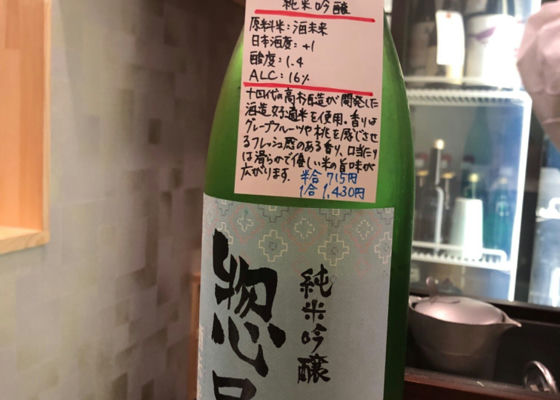 純米吟醸
原料米：酒未来
日本酒度：+1
酸度：1.4
ALC：16%
十四代の高木酒造が開発した
酒造好適米を使用。香りは
グレープフルーツや桃を感じさせ
るフレッシュ感のある香り、口当たり
は滑らかで優しい米の旨味が
広がります。
半合 715円
1合 1,430円
純米吟醸
惣